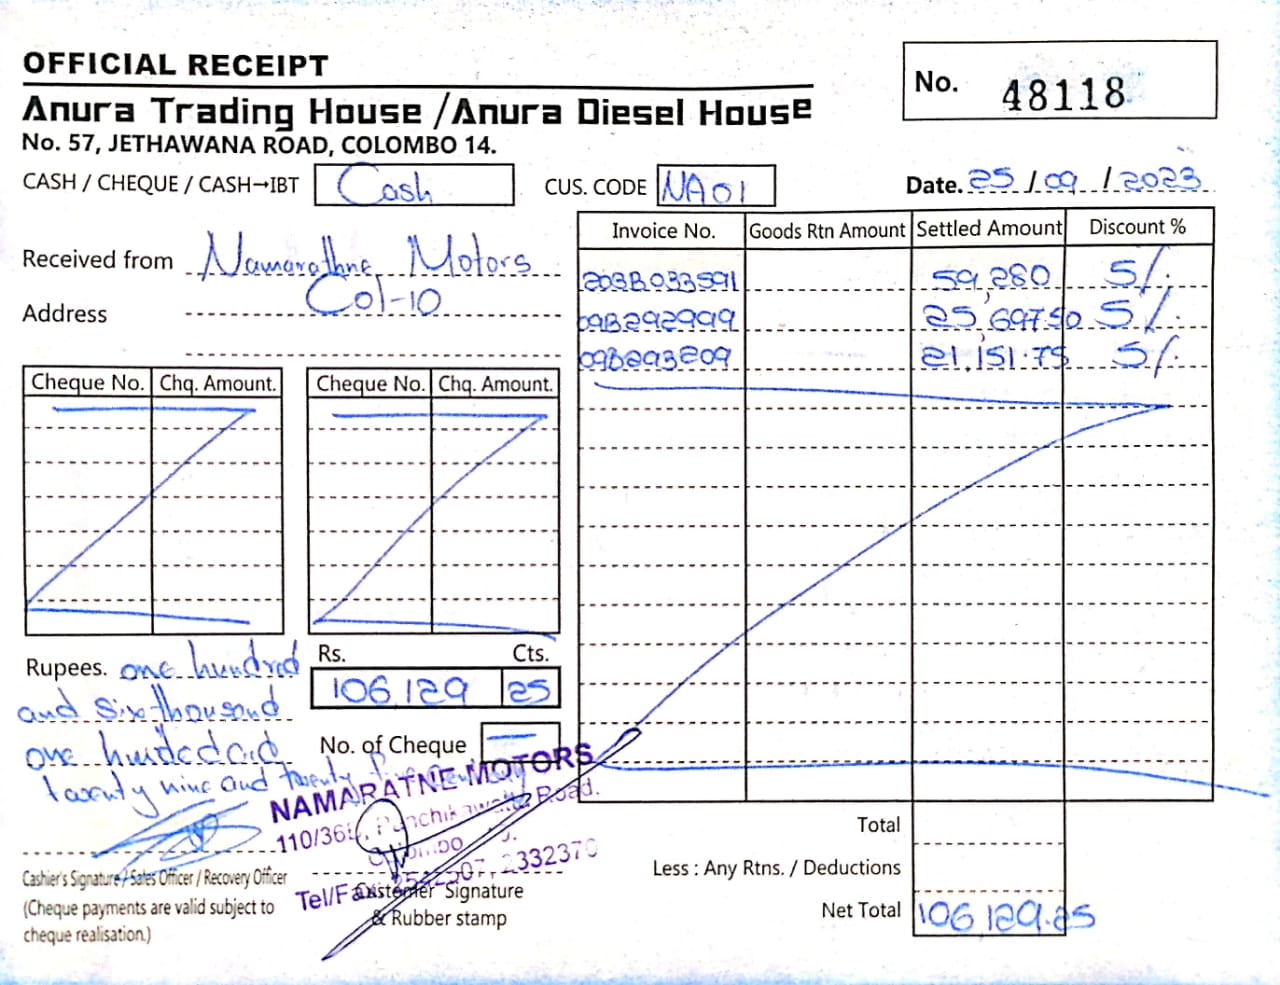 OFFICIAL RECEIPT
No. 48118
Anura Trading House / Anura Diesel House
No. 57, JETHAWANA ROAD, COLOMBO 14.
CASH / CHEQUE / CASH→IBT Cash CUS. CODE NA01 Date. 25/09/2023
Received from Namarathne Motors
Address Col-10
Invoice No. Goods Rtn Amount Settled Amount Discount %
203B033591 59,280 5/.
09B292999 25,697.50 5/.
09B293209 21,151.75 5/.
Cheque No. Chq. Amount. Cheque No. Chq. Amount.
Rupees. one hundred
and Six thousand
one
twenty nine and twenty
Rs. Cts.
106,129 25
No. of Cheque —
NAMARATNE MOTORS
110/36 Panchikawatta Road.
Tel/Fax 2332370
Cashier's Signature / Sales Officer / Recovery Officer
(Cheque payments are valid subject to
cheque realisation.)
Customer Signature
& Rubber stamp
Total
Less : Any Rtns. / Deductions
Net Total 106,129.25